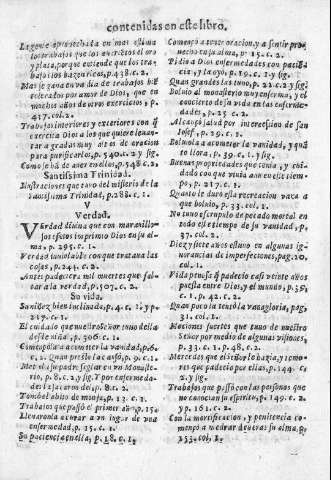 contenidas en este libro.
La gente aprovechada en mas estima
los trabajos que los
y plata, porque entiende que los tra-
bajos los haze ricos, p.438.c.2.
Mas se gana en un dia de trabajos
por amor de Dios, que en
muchos años de otro exercicios, p.
437. col. 2.
Trabajos interiores y exteriores con q̃
exercita Dios a los que quiere levan-
tar a grados muy altos de oracion
para purificarlos, p. 540. c. 2. y sig.
Como se hã de aver en ellos, p. 548. c. 2
Santissima Trinidad.
Ilustraciones que tuvo del misterio de la
Santissima Trinidad, p. 288. c. 1.
V
Verdad.
Verdad divina que con maravillo-
sos efetos imprimio Dios en su al-
ma, p. 295. c. 1.
Verdad inviolable con que tratava las
cosas, p. 244. c. 2.
Antes padeciera mil muertes que fal-
tar a la verdad, p. 507. c. 2.
Su vida.
Su niñez bien inclinada, p. 4. c. 1. y p.
217. c. 1.
El cuidado que nuestro Señor tenia della
desde niña, p. 306. c. 1.
Començò la a acometer la vanidad, p. 6.
c. 1. Quan presto la atajò, p. 9. c. 1.
Metela su padre seglar en un Monaste-
rio, p. 8. c. 2. y sig. Y por enfermeda-
des la sacaron de el, p. 8. c. 2
Tomò el abito de monja, p. 13. c. 2.
Trabajos que passò el primer año, p. 15.
Llevaronla a curar a un lugar de una
enfermedad, p. 25. c. 1.
Su paciencia en ella, p. 18. c. 1.
Començò a tener oracion, y a sentir pro-
vecho en su alma, p. 15. c. 2.
Pidiò a Dios enfermedades con pacien-
cia, y la oyò, p. 19. c. 2. y sig
Bolviò al monasterio muy enferma, y el
concierto de su vida en las enferme-
dades, p. 25 c. 2.
Alcançò salud por intercession de san
Iosef, p. 29. c. 1.
Bolviola a acometer la vanidad, y quã
to llora, p. 39. c. 1. y sig.
Buenas propiedades que tenia, y cuida-
do con que vivia aun en esse tiem-
po, p. 217. c. 1.
Quanto le durò esta recreacion vaca a
que bolvio, p. 33. col. 2.
No tuvo escrupulo de pecado mortal en
todo esse tiempo de su vanidad, p.
37. col. 2.
Diez y siete años estuvo en algunas ig-
norancias de imperfecciones, pag. 20.
col. 1.
Vida penosa q̃ padecio casi veinte años
puesta entre Dios, y el mundo, p. 39.
c. 1, p. 42. c. 2.
Quan poco la tentò la vanagloria, pag.
31, col. 1.
Mociones fuertes que tuvo de nuestro
Señor por medio de algunas visiones,
p. 33. c. 1. p. 48. c. 2.
Mercedes que el Señor le hazia, y temo-
res que padecio por ellas, p. 144. c.
2. y sig.
Trabajos que passò con las personas que
no conocian su espiritu, p. 149. c. 2.
y p. 161. c. 2.
Con la mortificacion, y penitencia co-
mençò a mejorar de veras su alma, p.
153. col. 1.